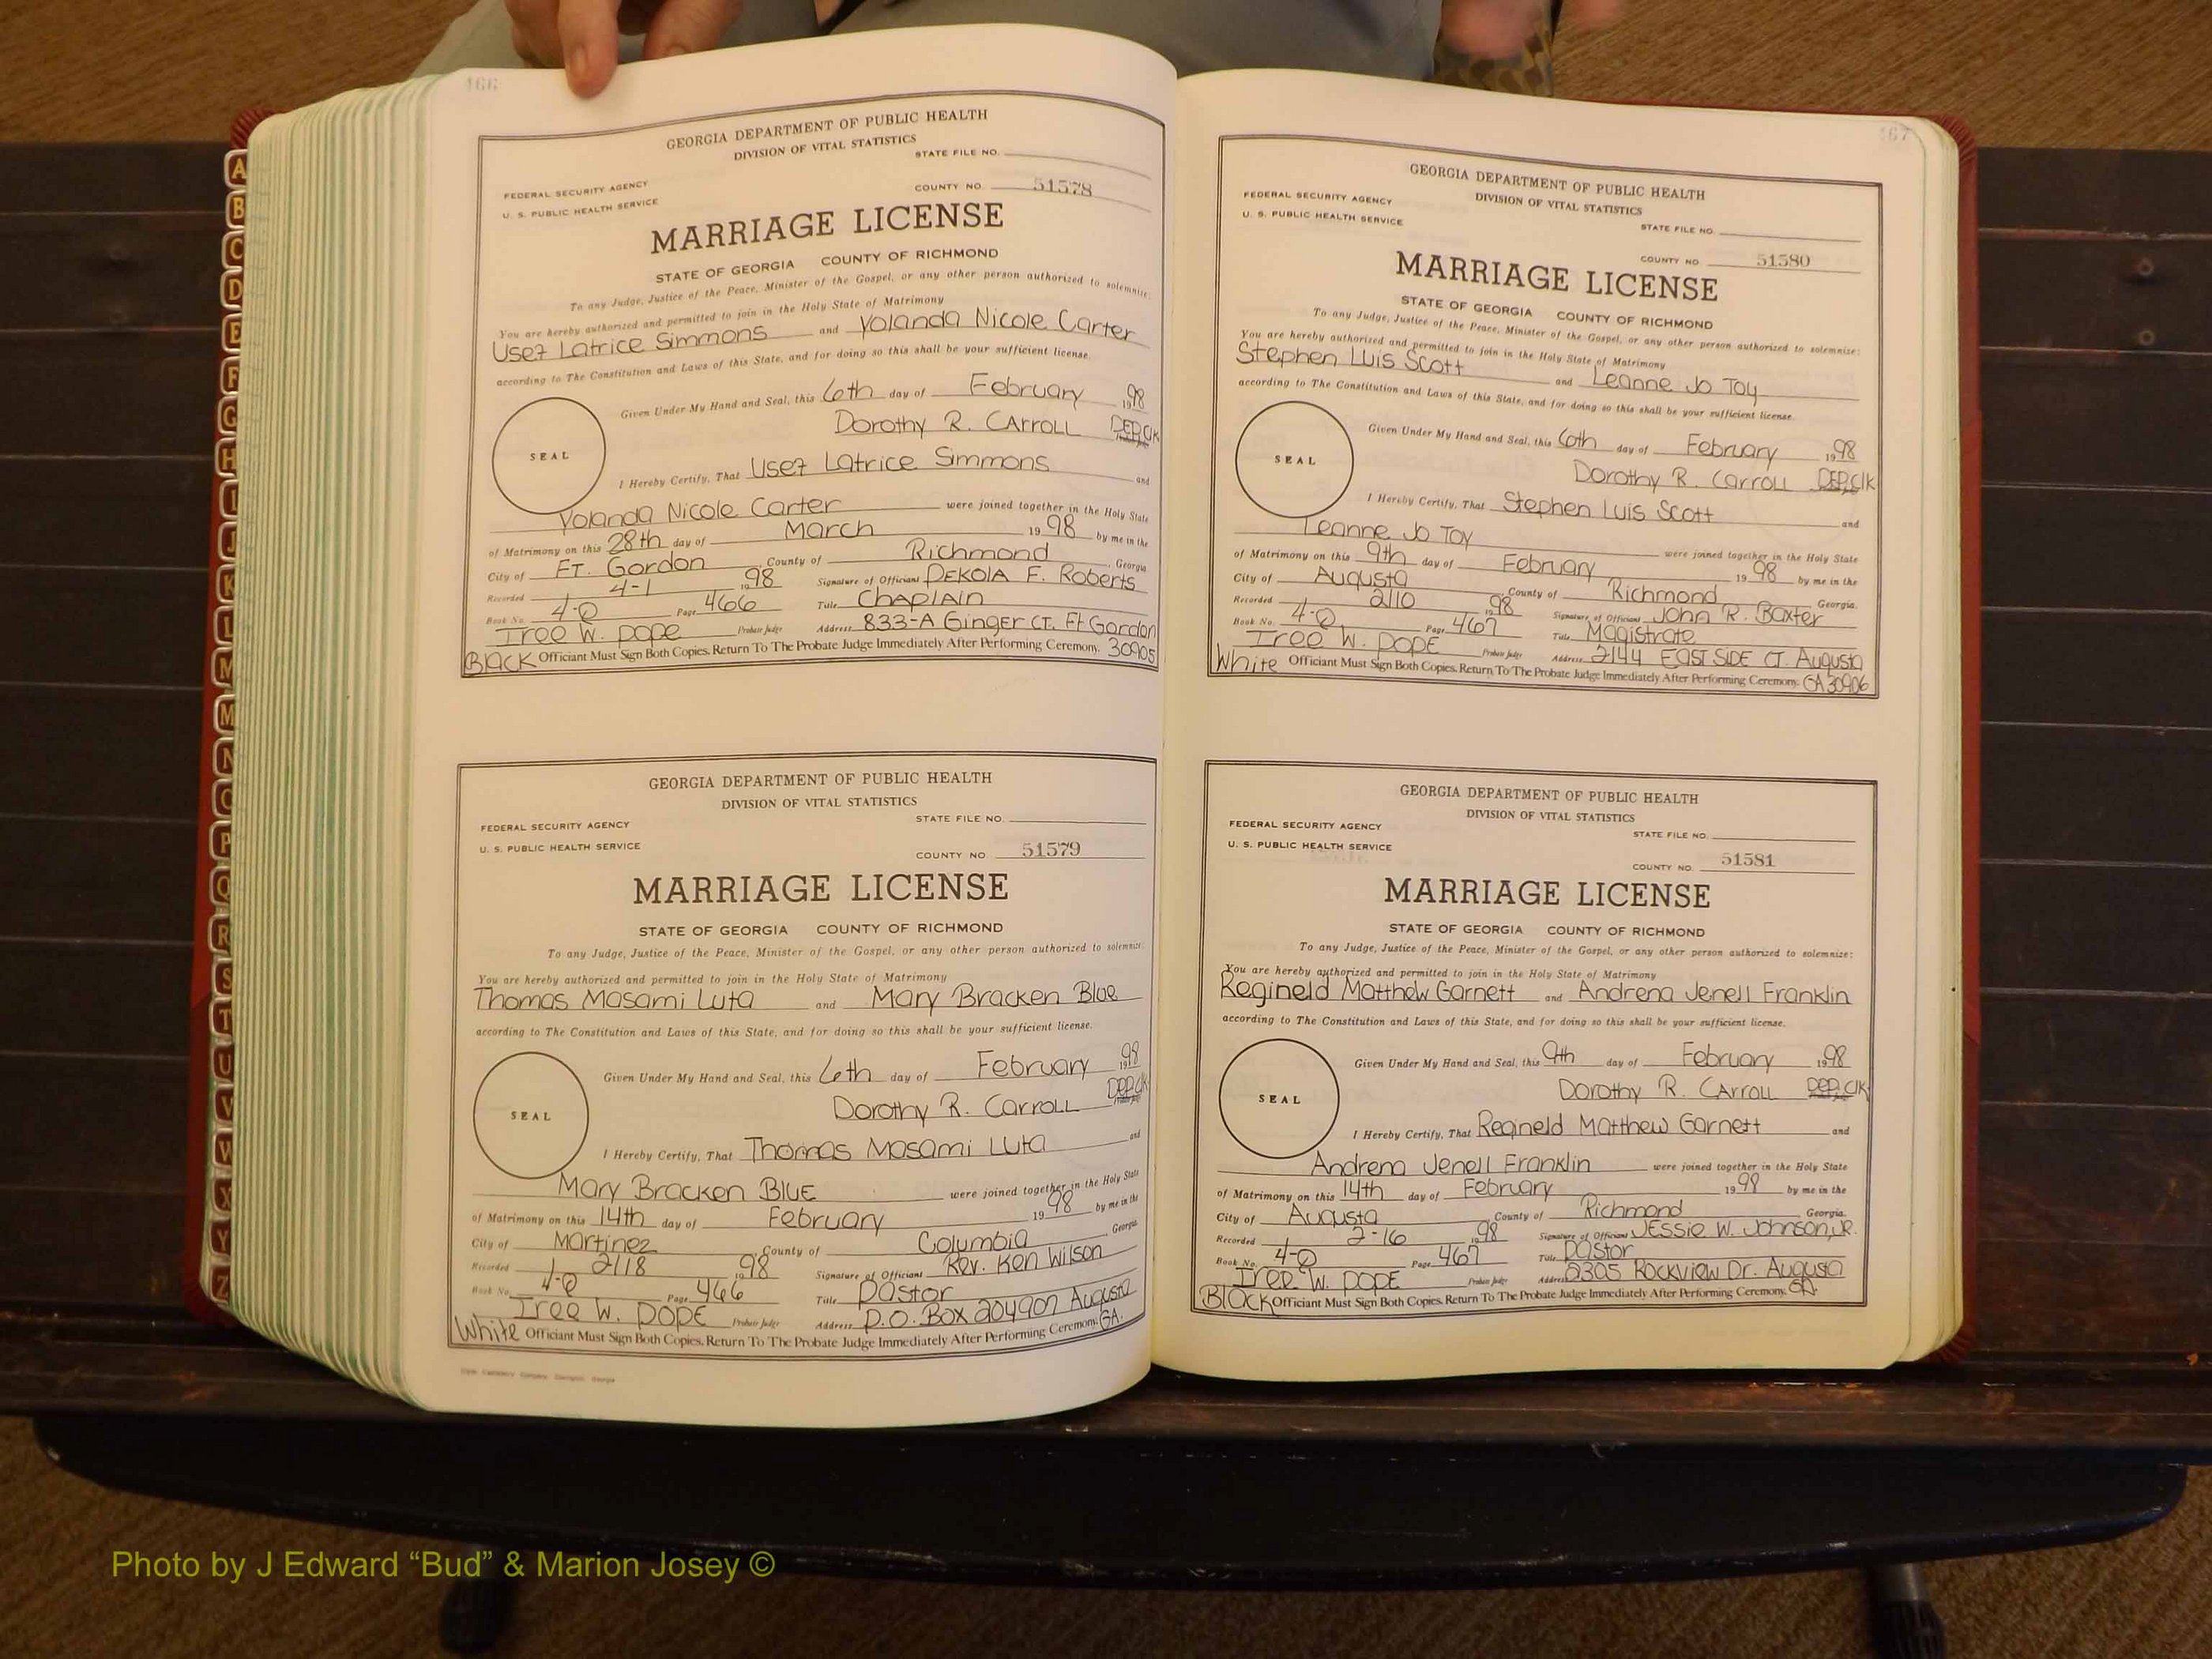 466
GEORGIA DEPARTMENT OF PUBLIC HEALTH
DIVISION OF VITAL STATISTICS
STATE FILE NO.
FEDERAL SECURITY AGENCY
U. S. PUBLIC HEALTH SERVICE
COUNTY NO. 51578
MARRIAGE LICENSE
STATE OF GEORGIA COUNTY OF RICHMOND
To any Judge, Justice of the Peace, Minister of the Gospel, or any other person authorized to solemnize:
You are hereby authorized and permitted to join in the Holy State of Matrimony
Usez Latrice Simmons and Yolanda Nicole Carter
according to The Constitution and Laws of this State, and for doing so this shall be your sufficient license.
Given Under My Hand and Seal, this 6th day of February 1998
Dorothy R. CArroLL DEP, Clk
SEAL
I Hereby Certify, That Usez Latrice Simmons and
Yolanda Nicole Carter were joined together in the Holy State
of Matrimony on this 28th day of March 1998 by me in the
City of FT. Gordon, County of Richmond, Georgia
Recorded 4-1 1998 Signature of Officiant DEKOlA F. Roberts
Book No. 4-Q Page 466 Title CHAPlAIN
Iree W. pope Probate Judge Address 833-A GingEr CT. Ft Gordon
BlACK Officiant Must Sign Both Copies. Return To The Probate Judge Immediately After Performing Ceremony. 30905
GEORGIA DEPARTMENT OF PUBLIC HEALTH
DIVISION OF VITAL STATISTICS
STATE FILE NO.
FEDERAL SECURITY AGENCY
U. S. PUBLIC HEALTH SERVICE
COUNTY NO 51579
MARRIAGE LICENSE
STATE OF GEORGIA COUNTY OF RICHMOND
To any Judge, Justice of the Peace, Minister of the Gospel, or any other person authorized to solemnize:
You are hereby authorized and permitted to join in the Holy State of Matrimony
Thomas Masami Luta and Mary Bracken Blue
according to The Constitution and Laws of this State, and for doing so this shall be your sufficient license.
Given Under My Hand and Seal, this 6th day of February 1998
Dorothy R. CarroLL DEP, Clk
SEAL
I Hereby Certify, That Thomas Masami Luta and
Mary Bracken BLUE were joined together in the Holy State
of Matrimony on this 14th day of February 1998 by me in the
City of Martinez, County of Columbia, Georgia
Recorded 2/18 1998 Signature of Officiant Rev. Ken Wilson
Book No. 4-Q Page 466 Title Pastor
Iree W. POPE Probate Judge Address P.O. Box 204907 Augusta
White Officiant Must Sign Both Copies. Return To The Probate Judge Immediately After Performing Ceremony. GA.
467
GEORGIA DEPARTMENT OF PUBLIC HEALTH
DIVISION OF VITAL STATISTICS
FEDERAL SECURITY AGENCY
U. S. PUBLIC HEALTH SERVICE
STATE FILE NO.
COUNTY NO. 51580
MARRIAGE LICENSE
STATE OF GEORGIA COUNTY OF RICHMOND
To any Judge, Justice of the Peace, Minister of the Gospel, or any other person authorized to solemnize:
You are hereby authorized and permitted to join in the Holy State of Matrimony
Stephen Luis Scott and Leanne Jo Toy
according to The Constitution and Laws of this State, and for doing so this shall be your sufficient license.
Given Under My Hand and Seal, this 6th day of February 1998
Dorothy R. Carroll DEP, Clk
SEAL
I Hereby Certify, That Stephen Luis Scott and
Leanne Jo Toy were joined together in the Holy State
of Matrimony on this 9th day of February 1998 by me in the
City of Augusta, County of Richmond, Georgia.
Recorded 2/10 1998 Signature of Officiant John R. Baxter
Book No. 4-Q Page 467 Title Magistrate
Iree W. POPE Probate Judge Address 2144 EAST SIDE CT. Augusta
White Officiant Must Sign Both Copies. Return To The Probate Judge Immediately After Performing Ceremony. GA 30906
GEORGIA DEPARTMENT OF PUBLIC HEALTH
DIVISION OF VITAL STATISTICS
FEDERAL SECURITY AGENCY
STATE FILE NO.
U. S. PUBLIC HEALTH SERVICE
COUNTY NO. 51581
MARRIAGE LICENSE
STATE OF GEORGIA COUNTY OF RICHMOND
To any Judge, Justice of the Peace, Minister of the Gospel, or any other person authorized to solemnize:
You are hereby authorized and permitted to join in the Holy State of Matrimony
Regineld Matthew Garnett and Andrena Jenell Franklin
according to The Constitution and Laws of this State, and for doing so this shall be your sufficient license.
Given Under My Hand and Seal, this 9th day of February 1998
Dorothy R. CArroll DEP, Clk
SEAL
I Hereby Certify, That Regineld Matthew Garnett and
Andrena Jenell Franklin were joined together in the Holy State
of Matrimony on this 14th day of February 1998 by me in the
City of Augusta County of Richmond Georgia.
Recorded 2-16 1998 Signature of Officiant JESSiE W. Johnson, JR.
Book No. 4-Q Page 467 Title PAStor
Iree W. POPE Probate Judge Address 2305 Rockview Dr. Augusta
BlACK Officiant Must Sign Both Copies. Return To The Probate Judge Immediately After Performing Ceremony. GA.
A
B
C
D
E
F
G
H
I
J
K
L
M
M
N
O
P
Q
R
S
T
U
V
W
X
Y
Z
Photo by J Edward “Bud” & Marion Josey ©